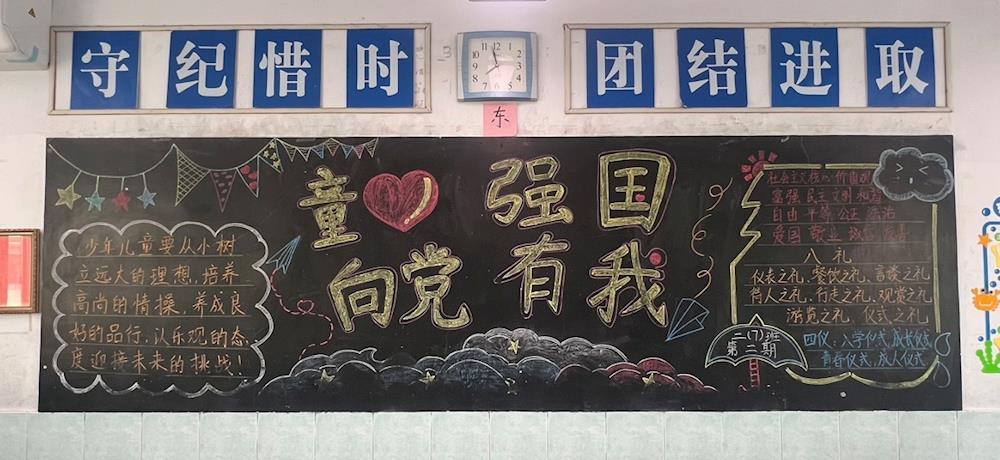 守纪惜时
团结进取
12
11
10
9
8
7
6
5
4
3
2
1
东
童
强国
向党
有我
少年儿童要从小树
立远大的理想,培养
高尚的情操,养成良
好的品行,以乐观的态
度迎接未来的挑战!
社会主义核心价值观
富强 民主 文明 和谐
自由 平等 公正 法治
爱国 敬业 诚信 友善
八礼
仪表之礼、餐饮之礼、言谈之礼
待人之礼、行走之礼、观赏之礼
游览之礼、仪式之礼
四仪:入学仪式,成长仪式
青春仪式,成人仪式
二(7)班
第二期